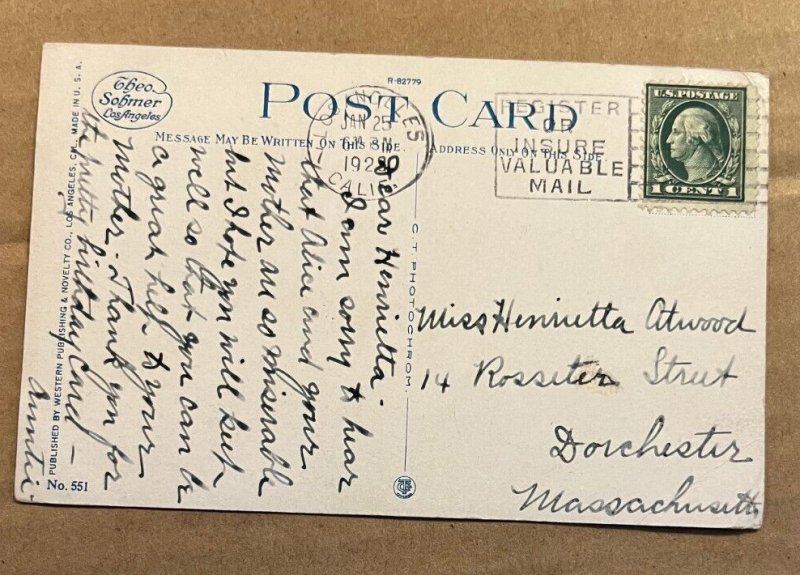 Theo.
Sohmer
Los Angeles
R-82779
POST CARD
MESSAGE MAY BE WRITTEN ON THIS SIDE.
ADDRESS ONLY ON THIS SIDE
JAN 25
CALIF
REGISTER
OR
INSURE
VALUABLE
MAIL
U.S. POSTAGE
1 CENT 1
Dear Henrietta -
I am sorry to hear
that Alice and your
Mother are so miserable
but I hope you will keep
well so that you can be
a great help to your
Mother. Thank you for
the pretty birthday card -
Auntie.
Miss Henrietta Atwood
14 Rosseter Street
Dorchester
Massachusetts
C. T. PHOTOCHROM
PUBLISHED BY WESTERN PUBLISHING & NOVELTY CO., LOS ANGELES, CAL. MADE IN U. S. A.
No. 551